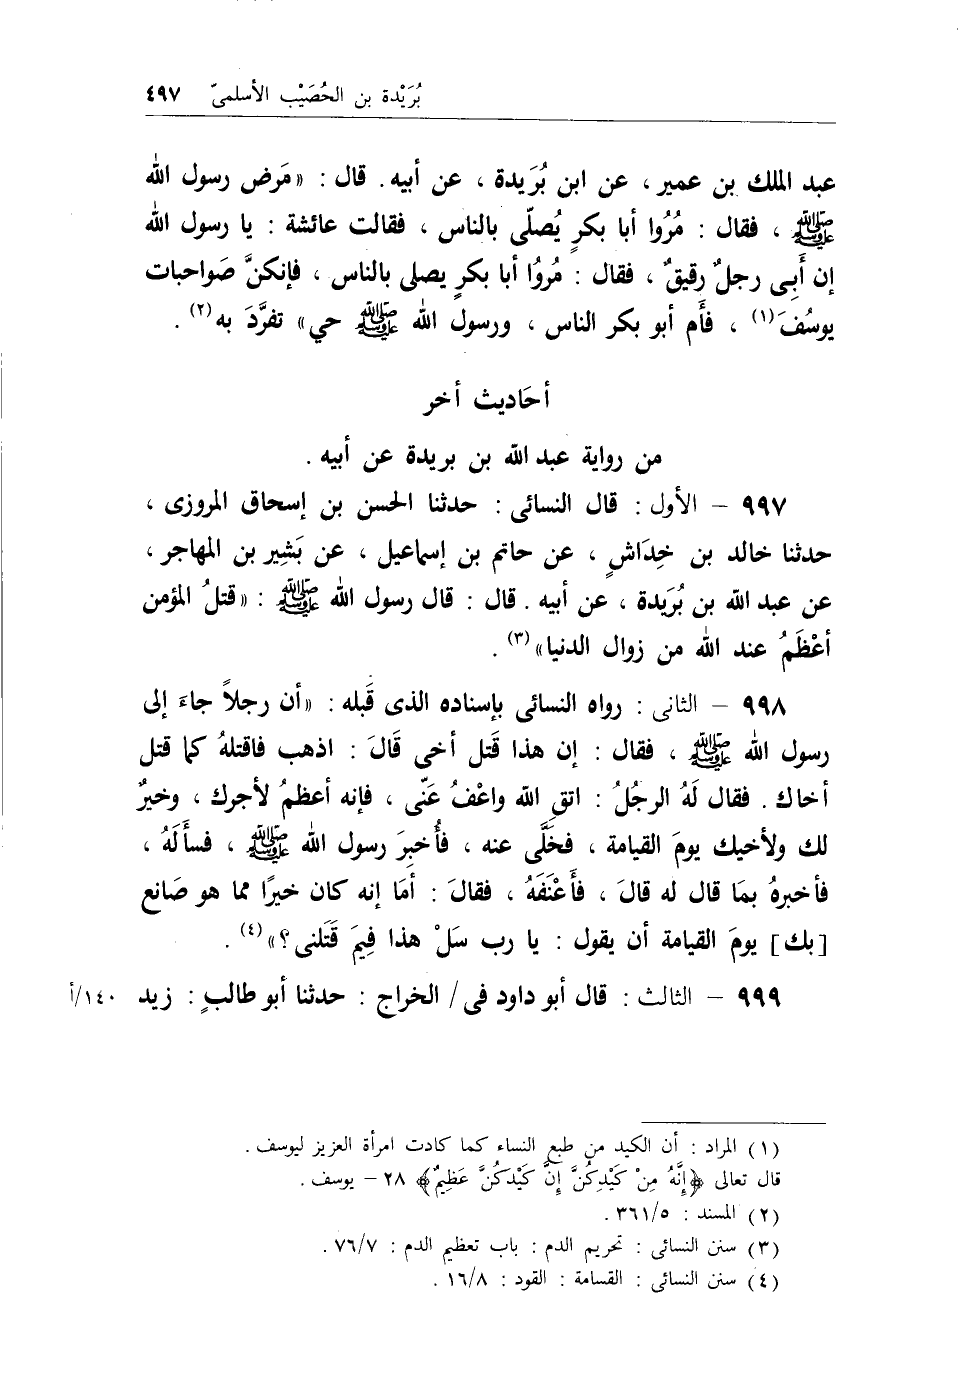 بُرَيْدة بن الحُصَيْب الأسلمىّ ٤٩٧
عبد الملك بن عمير ، عن ابن بُرَيدة ، عن أبيه . قال : «مَرض رسول الله
ﷺ ، فقال : مُرُوا أبا بكرٍ يُصلّى بالناس ، فقالت عائشة : يا رسول الله
إن أَبِى رجلٌ رقيقٌ ، فقال : مُروُا أبا بكرٍ يصلى بالناس ، فإنكنَّ صَواحبات
يوسُفَ(١) ، فأَم أبو بكر الناس ، ورسول الله ﷺ حي» تفرَّدَ به(٢) .
أحَاديث أخر
من رواية عبد الله بن بريدة عن أبيه .
٩٩٧ – الأول : قال النسائى : حدثنا الحسن بن إسحاق المروزى ،
حدثنا خالد بن خِدَاشٍ ، عن حاتم بن إسماعيل ، عن بَشِير بن المهاجر ،
عن عبد الله بن بُرَيدة ، عن أبيه . قال : قال رسول الله ﷺ : «قتلُ المؤمن
أعْظَمُ عند الله من زوال الدنيا»(٣) .
٩٩٨ – الثانى : رواه النسائى بإسناده الذى قَبله : «أن رجلاً جاءَ إلى
رسول الله ﷺ ، فقال : إن هذا قَتل أخى قَالَ : اذهب فاقتلهُ كما قتل
أخاك . فقال لَهُ الرجُلُ : اتقِ الله واعْفُ عَنّى ، فإنه أعظمُ لأجرك ، وخيرٌ
لك ولأخيك يومَ القيامة ، فخَلَّى عنه ، فأُخبِرَ رسول الله ﷺ ، فسأَلَهُ ،
فأخبرهُ بمَا قال له قالَ ، فأَعْنَفَهُ ، فقالَ : أمَا إنه كان خيرًا مما هو صَانع
[بك] يومَ القيامة أن يقول : يا رب سَلْ هذا فِيمَ قَتَلنى؟»(٤) .
٩٩٩ – الثالث : قال أبو داود فى / الخراج : حدثنا أبو طالبٍ : زيد ١٤٠/أ
(١) المراد : أن الكيد من طبع النساء كما كادت امرأة العزيز ليوسف .
قال تعالى ﴿إِنَّهُ مِنْ كَيْدِكُنَّ إِنَّ كَيْدَكُنَّ عَظِيمٌ﴾ ٢٨ – يوسف .
(٢) المسند : ٣٦١/٥ .
(٣) سنن النسائى : تحريم الدم : باب تعظيم الدم : ٧٦/٧ .
(٤) سنن النسائى : القسامة : القود : ١٦/٨ .